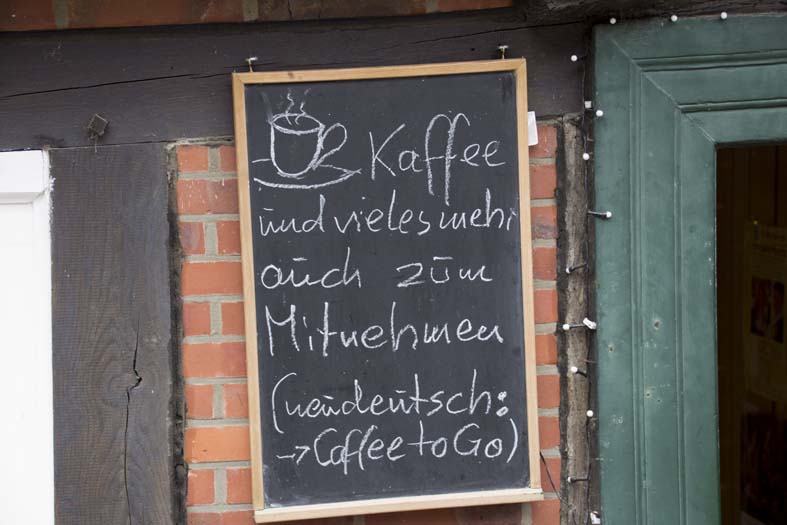 Kaffee
und vieles mehr
auch zum
Mitnehmen
(neudeutsch:
→ Coffee to Go)